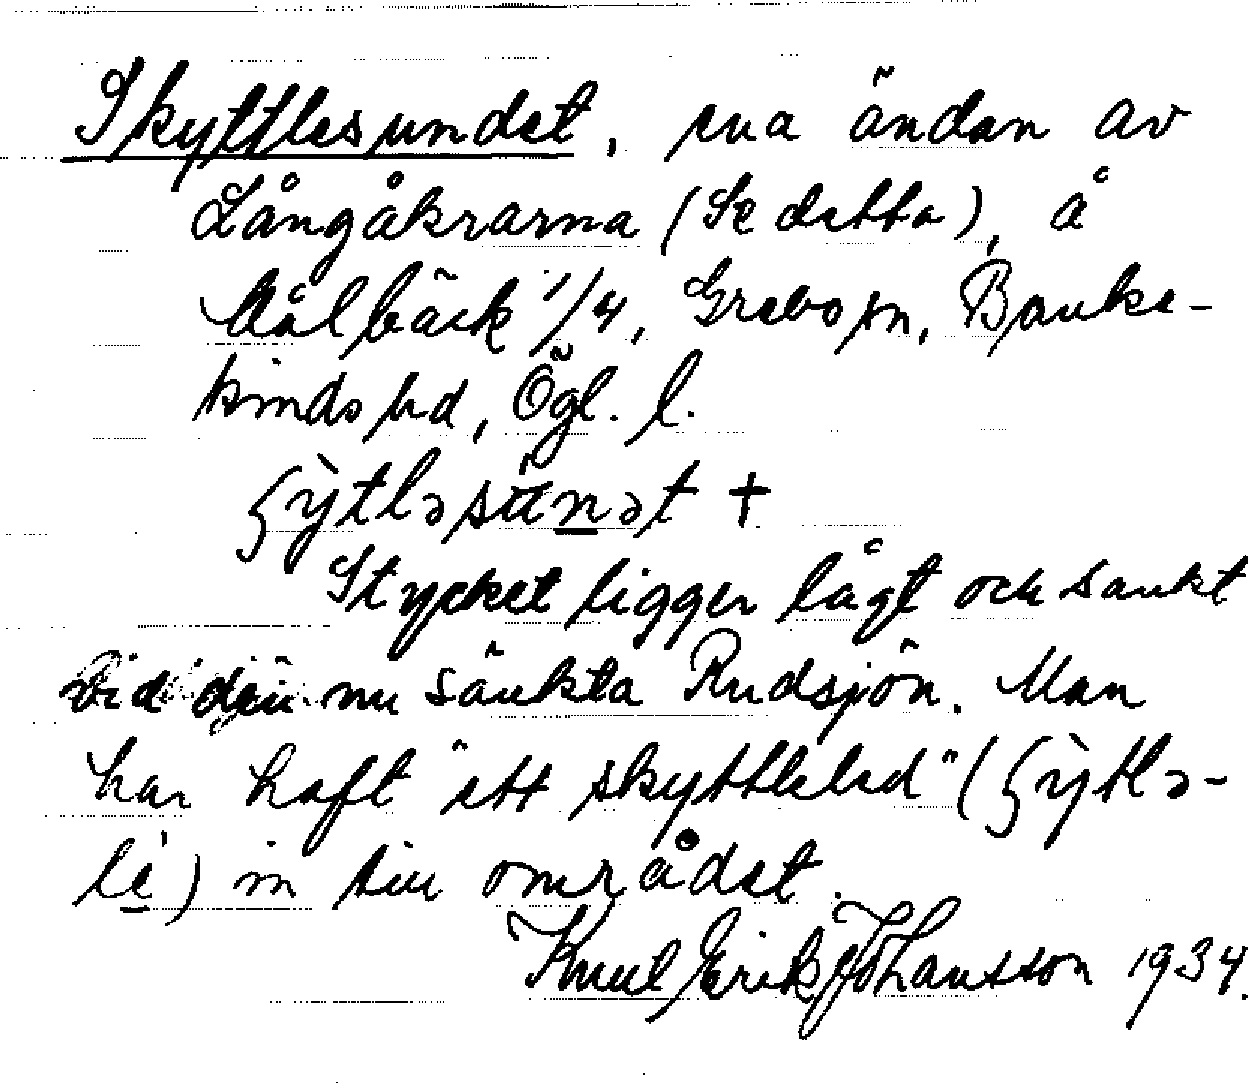 Skyttlesundet, ena ändan av
Långåkrarna (Se detta), å
Målbäck 1/4, Grebo sn, Banke-
kinds hd, Ögl. l.
ʃỳtləsúnət +
Stycket ligger lågt och sankt
vid den nu sänkta Rudsjön. Man
har haft "ett skyttleled" (ʃỳtlə-
lé) in till området.
Knut Erik Johansson 1934.